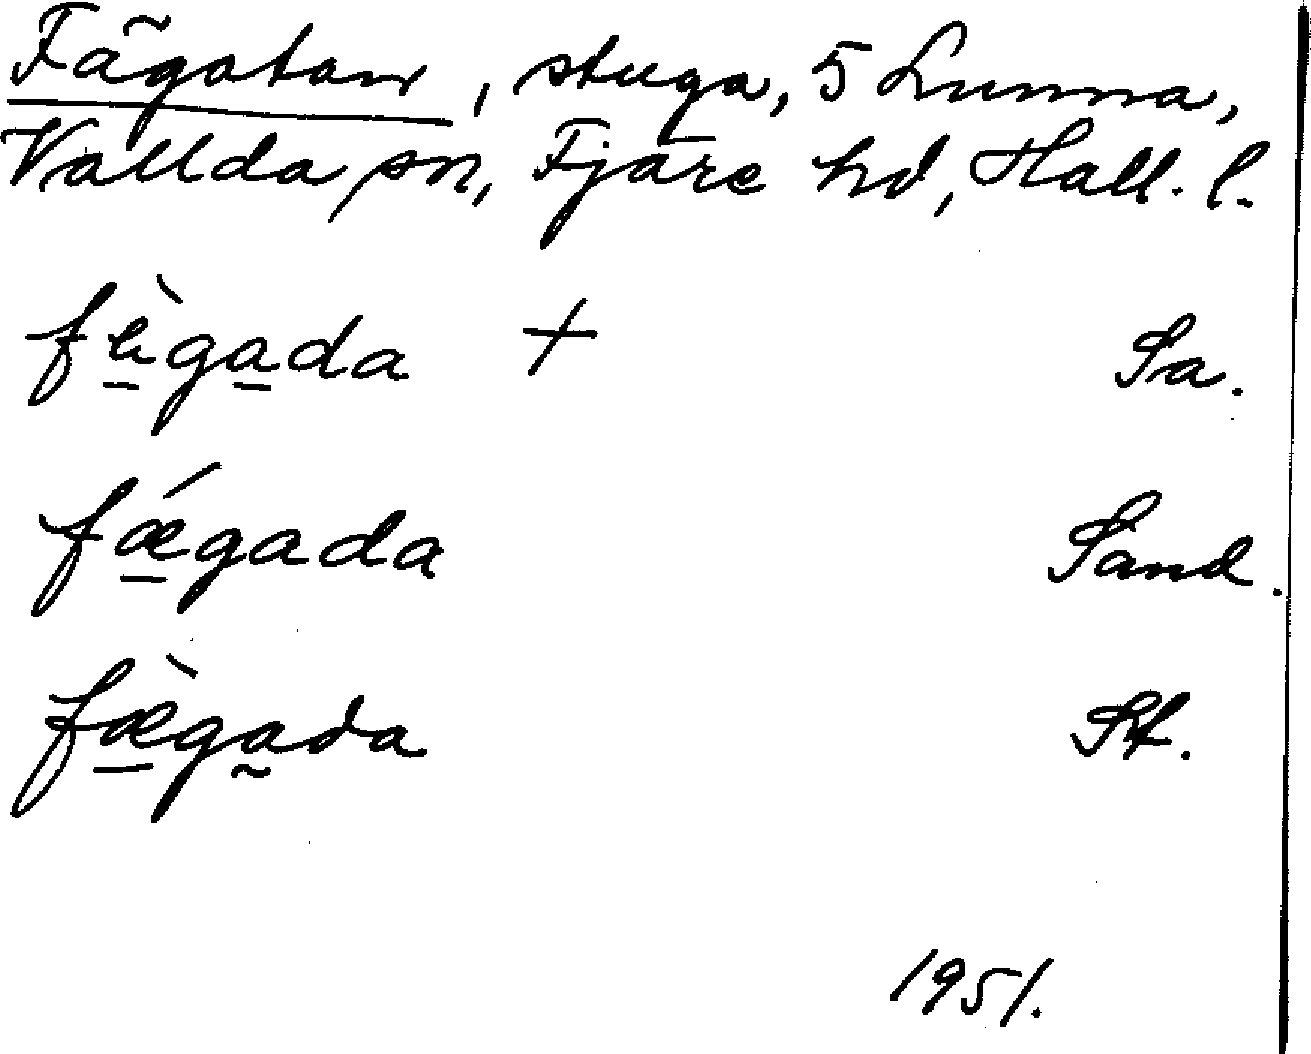 Fägatan, stuga, 5 Lunna,
Vallda sn, Fjäre hd, Hall. l.
fæ̀gada + Sa.
fǽgada Sand.
fæ̀gada
1951.